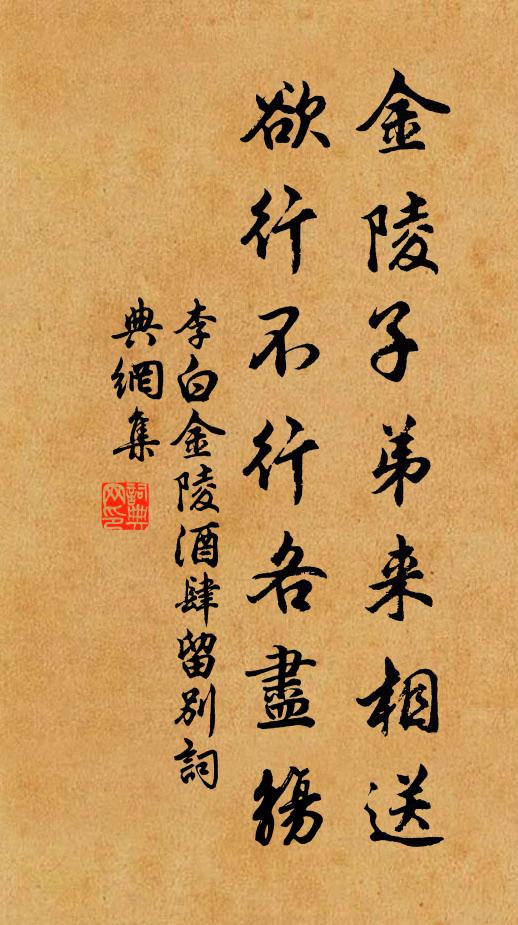 金陵子弟来相送
欲行不行各盡觴
李白金陵酒肆留别詞
典網集
詞典网印